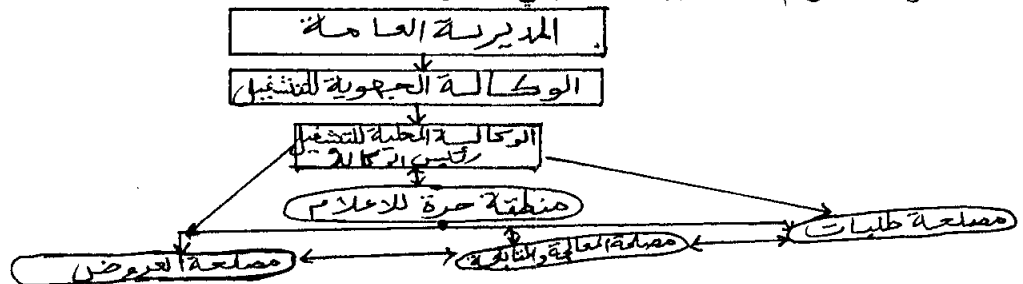 المديرية العامة
الوكالة الجهوية للتشغيل
الوكالة المحلية للتشغيل
رئيس الوكالة
منطقة حرة للاعلام
مصلحة طلبات
مصلحة المعالجة و
مصلحة العروض